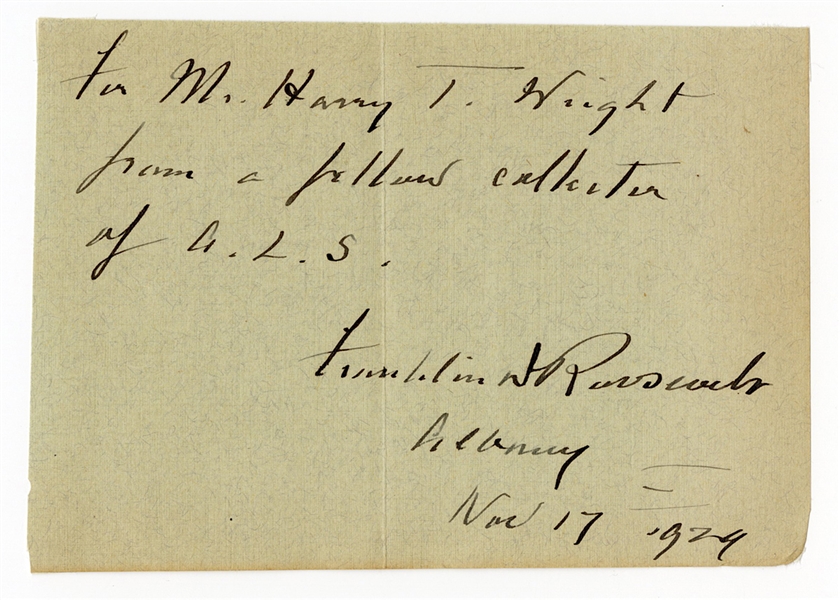 For Mr. Harry T. Wright
from a fellow collector
of A.L.S.
Franklin D Roosevelt
Albany
Nov 17 1929